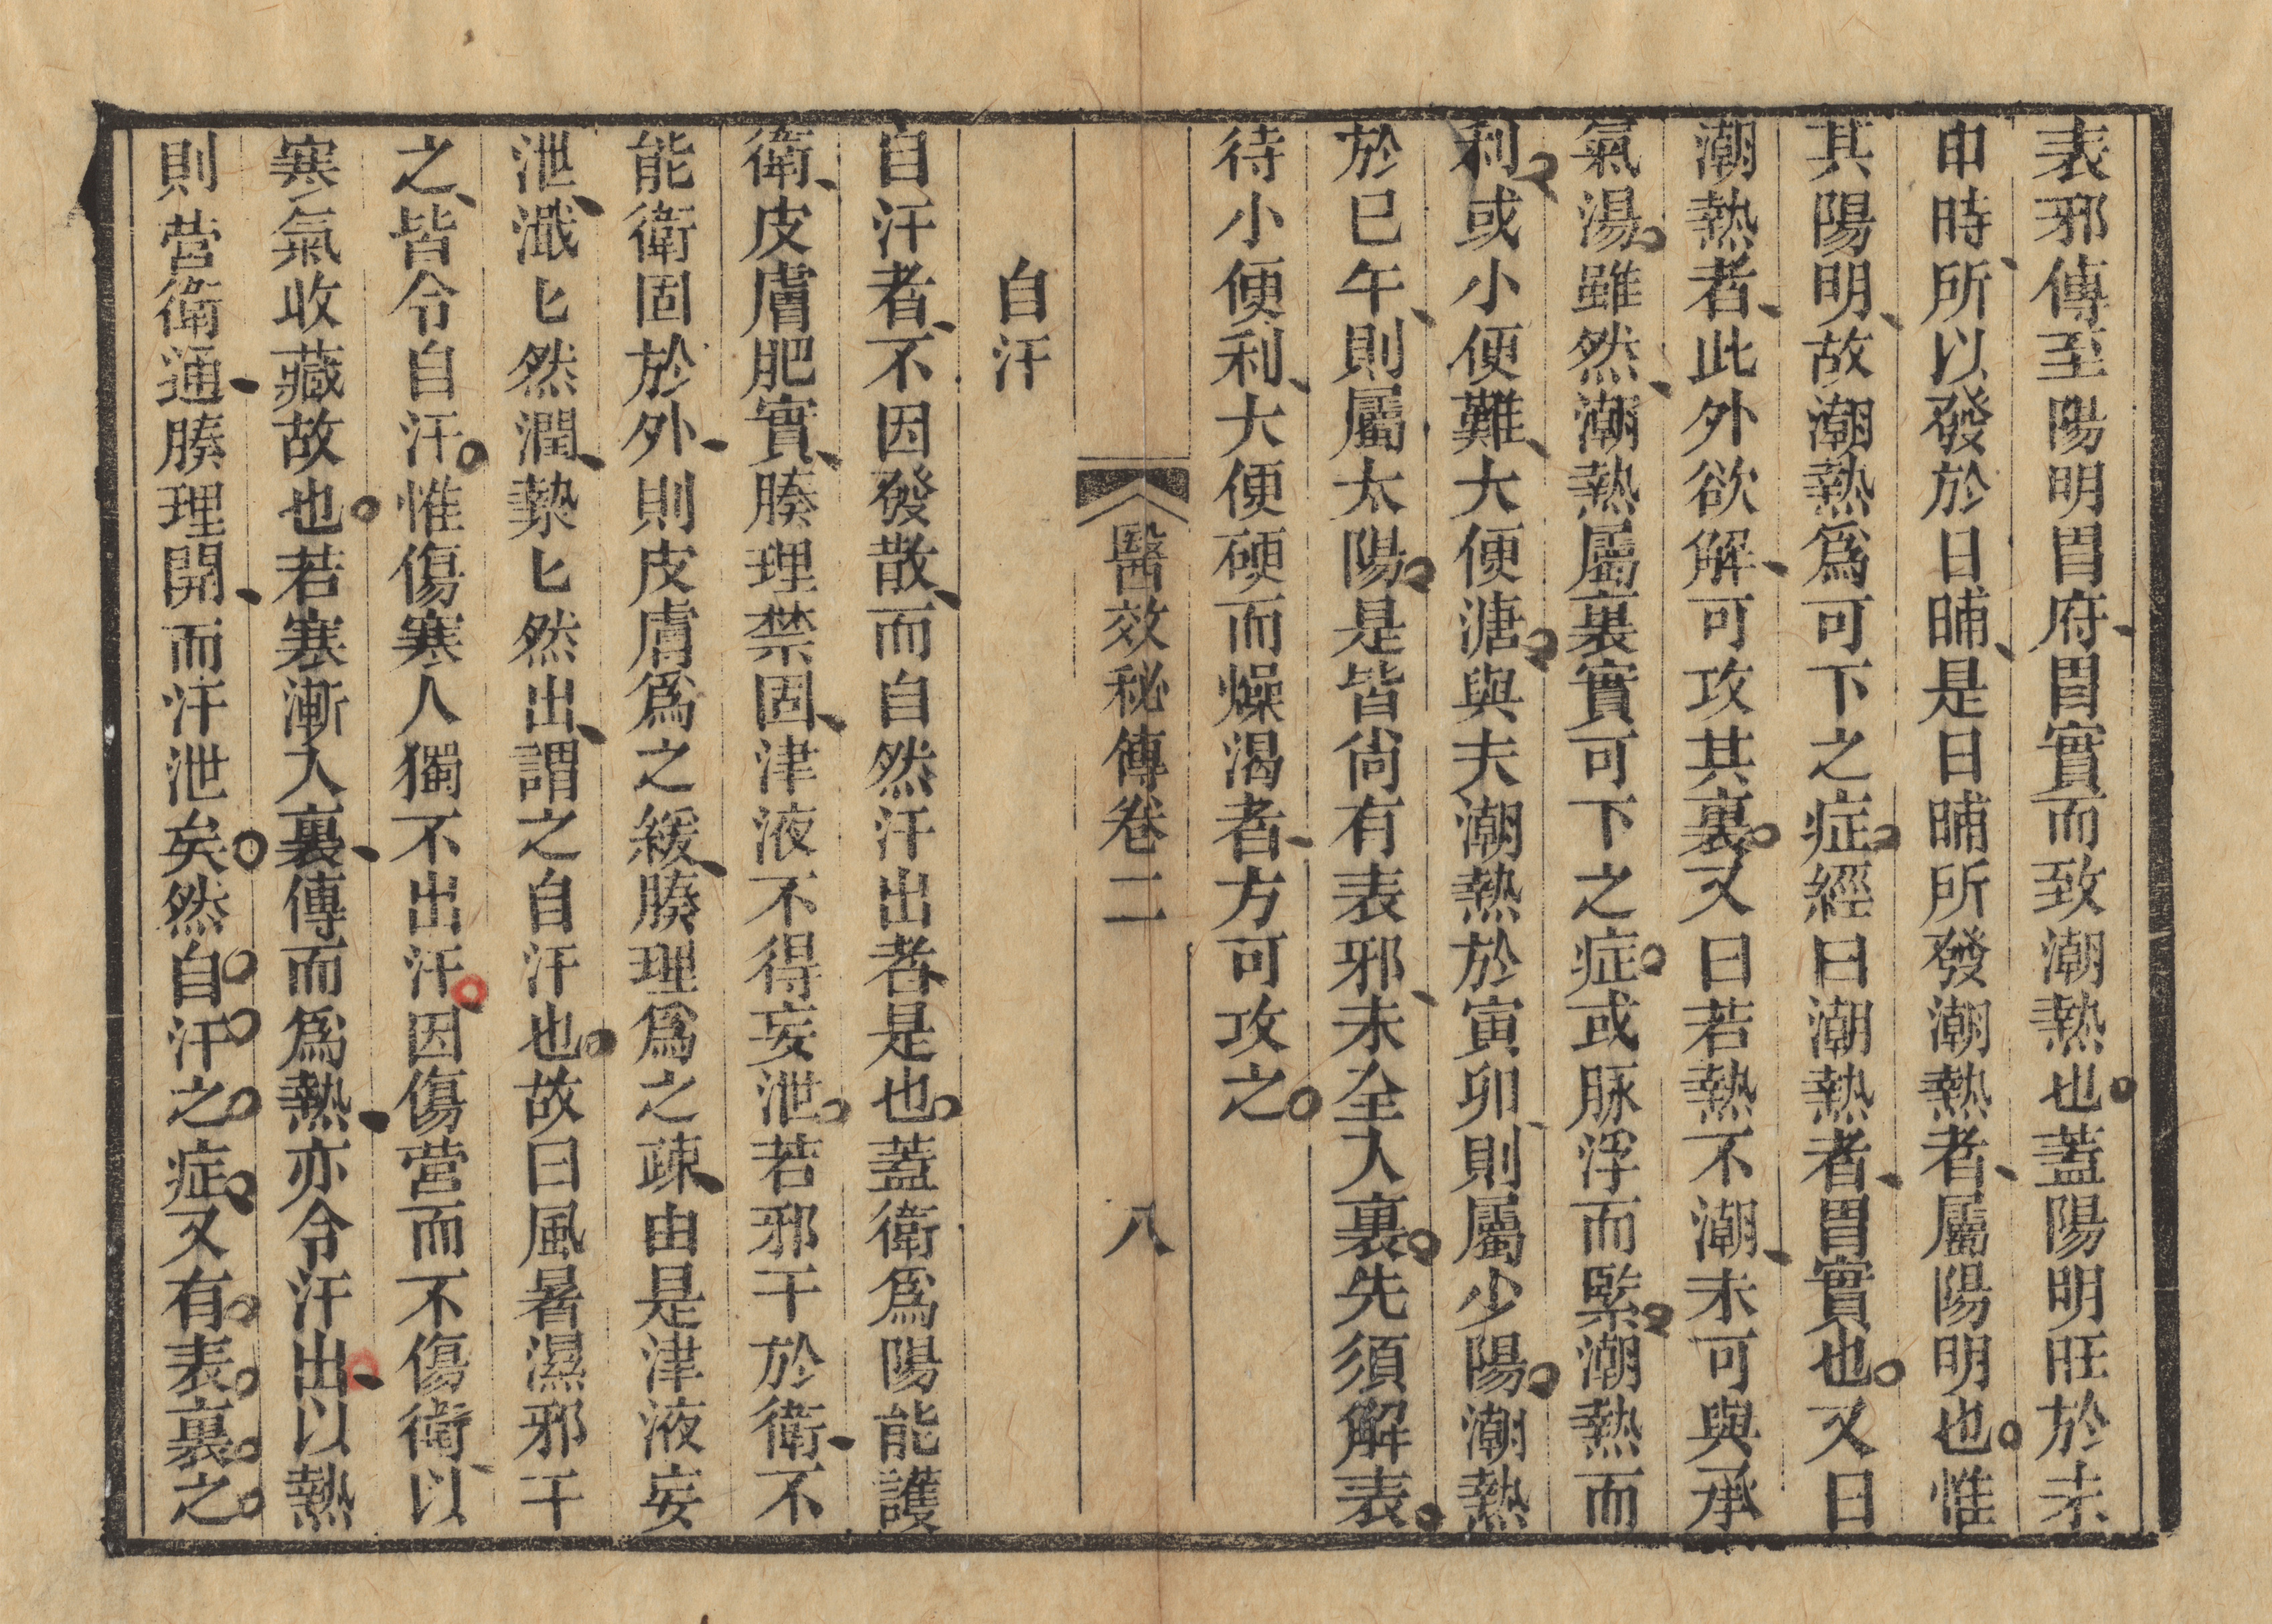 表邪傳至陽明胃府胃實而致潮熱也蓋陽明旺於未
申時所以發於日晡是日晡所發潮熱者屬陽明也惟
其陽明故潮熱爲可下之症經曰潮熱者胃實也又曰
潮熱者此外欲解可攻其裏又曰若熱不潮未可與承
氣湯雖然潮熱屬裏實可下之症或脈浮而緊潮熱而
利或小便難大便溏與夫潮熱於寅卯則屬少陽潮熱
於巳午則屬太陽是皆尚有表邪未全入裏先須解表
待小便利大便硬而燥渴者方可攻之
醫效秘傳卷二 八
自汗
自汗者不因發散而自然汗出者是也蓋衛爲陽能護
衛皮膚肥實腠理禁固津液不得妄泄若邪干於衛不
能衛固於外則皮膚爲之緩腠理爲之疎由是津液妄
泄濈匕然潤漐匕然出謂之自汗也故曰風暑濕邪干
之皆令自汗惟傷寒人獨不出汗因傷營而不傷衛以
寒氣收藏故也若寒漸入裏傳而爲熱亦令汗出以熱
則營衛通腠理開而汗泄矣然自汗之症又有表裏之